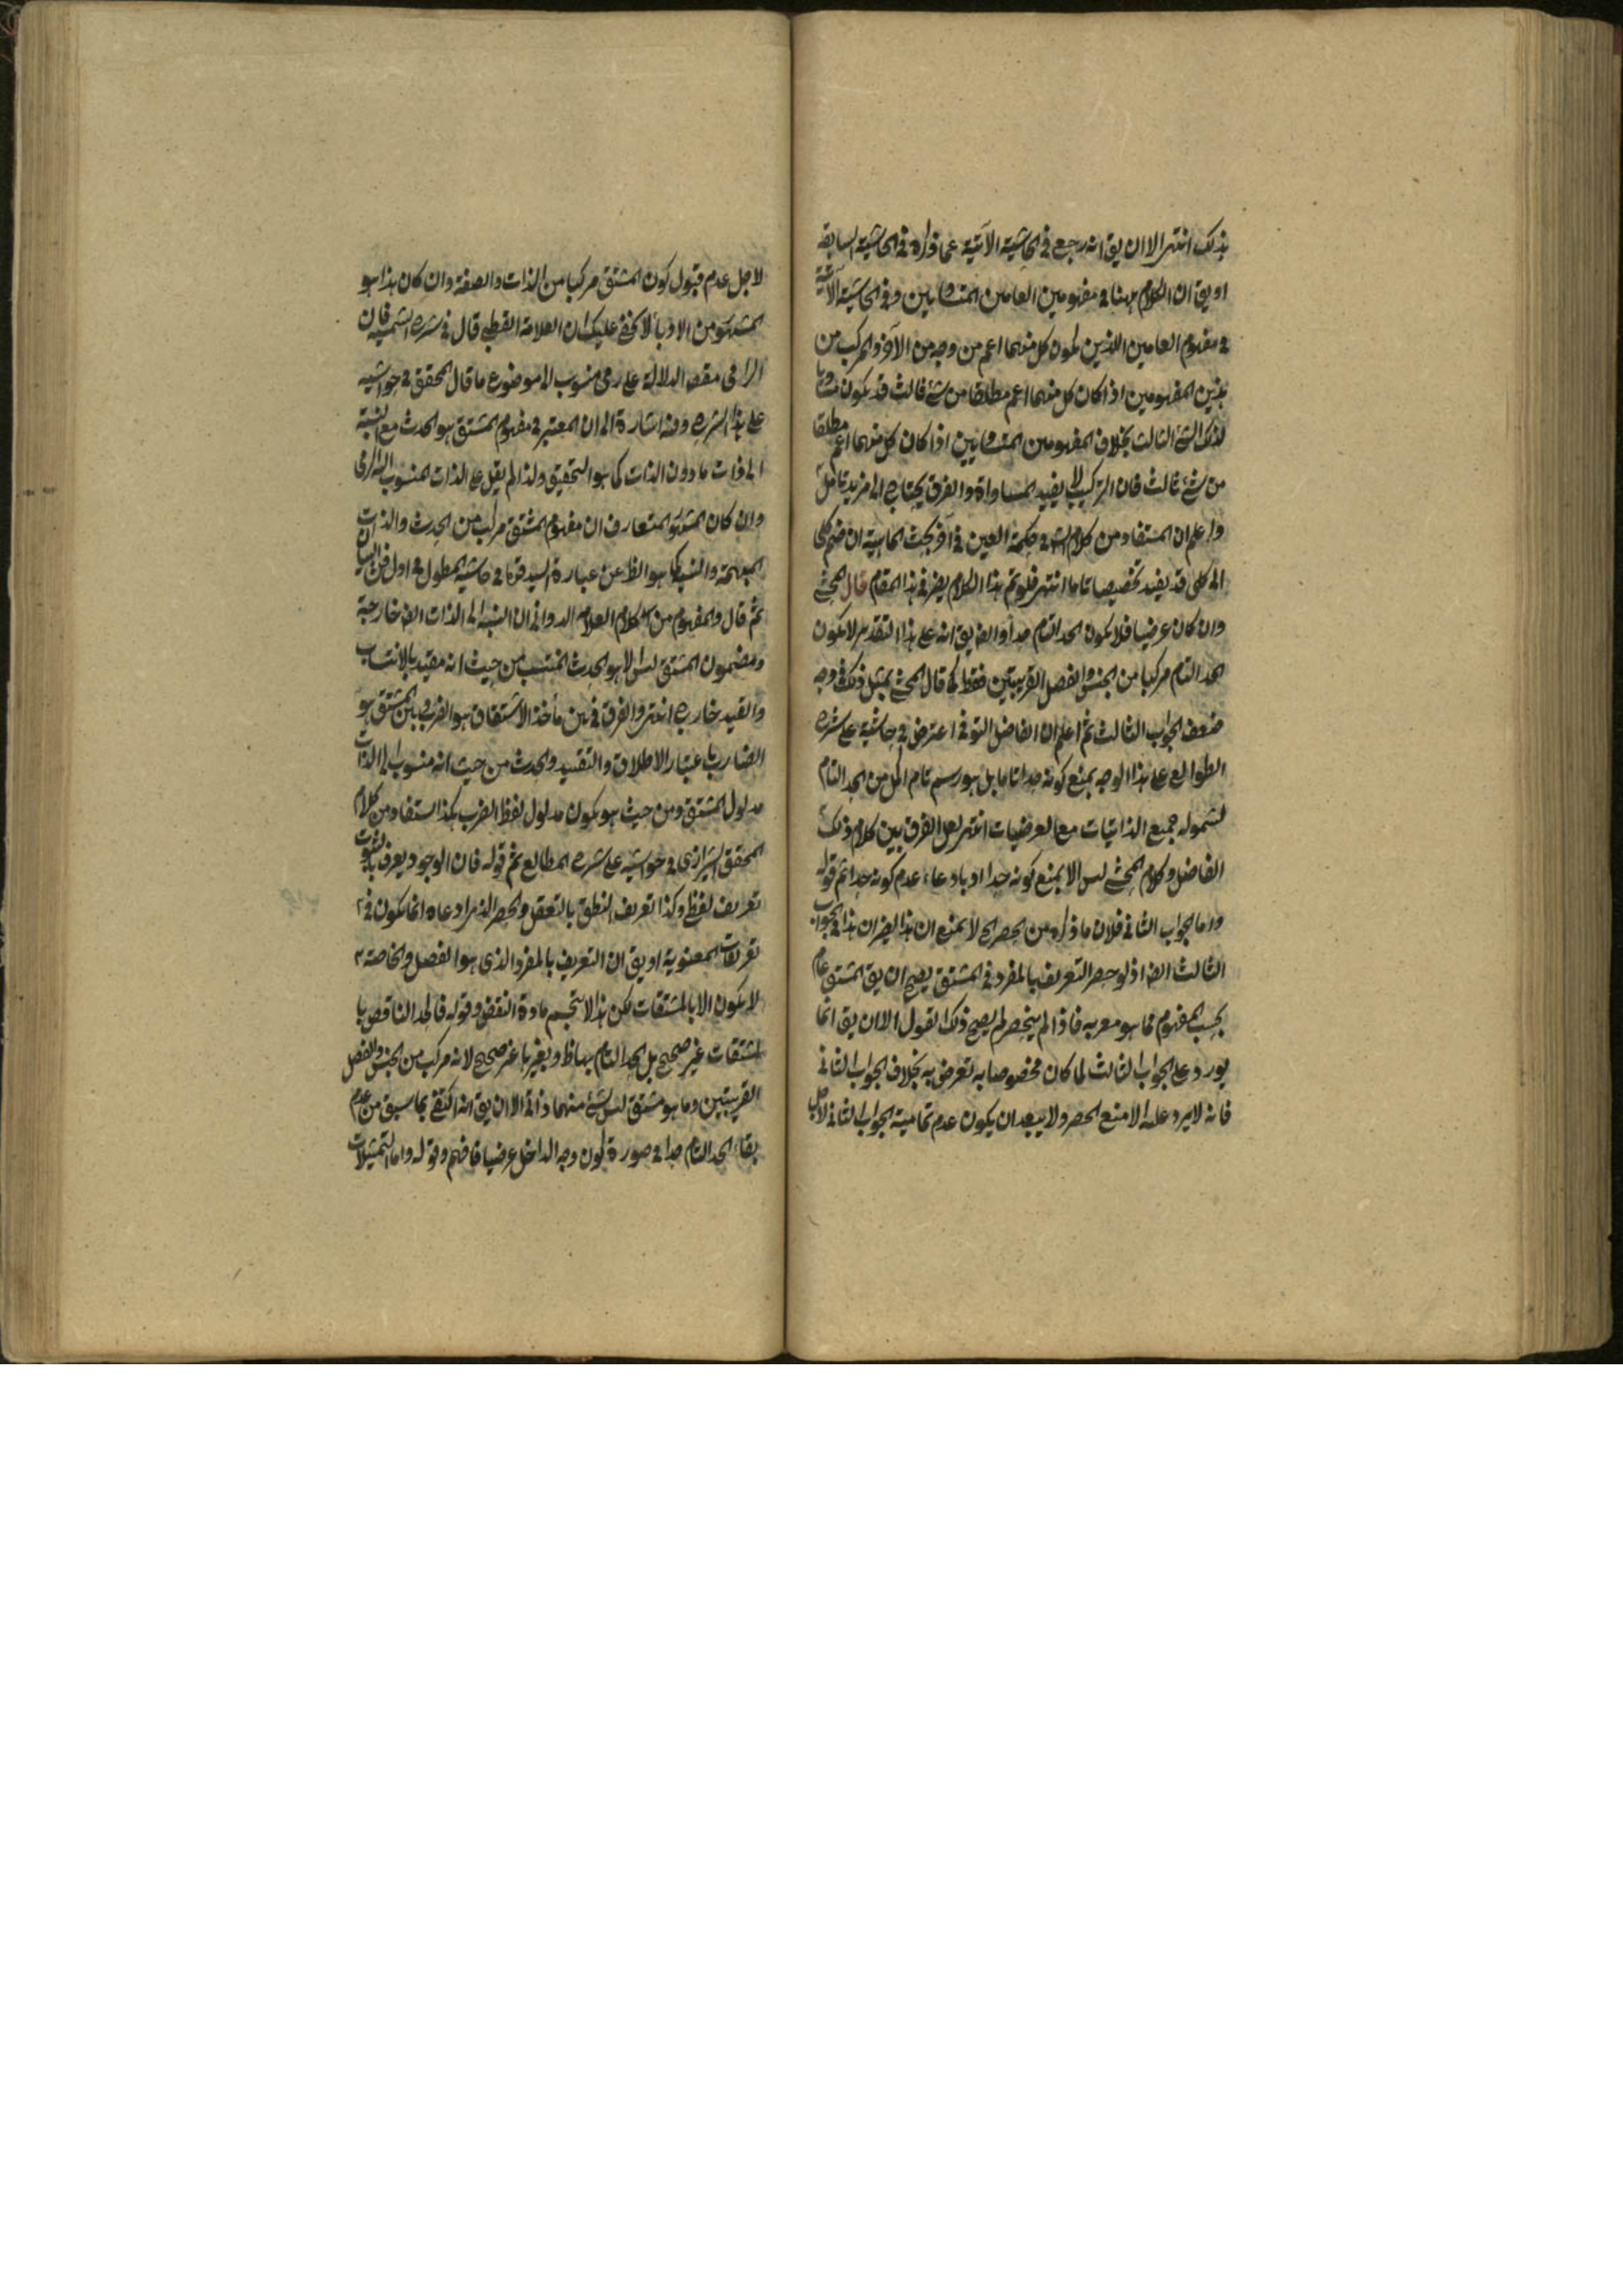 بذلك انتهى الا ان يق انه رجع في الحاشية الآتية عما ذكره في الحاشية السابقة
او يق ان الكلام ههنا في مفهومين العامين المتساويين وفي الحاشية الآتية
في مفهوم العامين اللذين يكون كل منهما اعم من وجه من الآخر والمركب من
هذين المفهومين اذا كان كل منهما اعم مطلقا من شئ ثالث قد يكون مساويا
لذلك الشئ الثالث بخلاف المفهومين المتساويين اذا كان كل منهما اعم مطلقا
من شئ ثالث فان التركيب لا يفيد المساواة والفرق يحتاج الى مزيد تامل
واعلم ان المستفاد من كلام الش في حكمة العين في آخر بحث الماهية ان ضم كلي
الى كلي قد يفيد تخصيصا تاما انتهى فلو تم هذا الكلام يضر في هذا المقام قال المحشي
وان كان عرضيا فلا يكون الحد التام حدا وايضا يق انه على هذا التقدير لا يكون
الحد التام مركبا من الجنس والفصل القريبين فقط كما قال المحشي بمثل ذلك في وجه
ضعف الجواب الثالث ثم اعلم ان الفاضل التوني اعترض في حاشية على شرح
الطوالع على هذا الوجه بمنع كونه حدا تاما بل هو رسم تام اكمل من الحد التام
لشموله جميع الذاتيات مع العرضيات انتهى لعل الفرق بين كلام ذلك
الفاضل وكلام المحشي ليس الا بمنع كونه حدا او بادعاء عدم كونه حدا ثم قوله
واما الجواب الثاني فلان ما ذكره من الحصر الخ لا يمنع ان هذا يضر ان هذا في الجواب
الثالث ايضا اذ لو حصر التعريف بالمفرد في المشتق يصح ان يق المشتق عام
بحسب المفهوم مما هو معرف به فاذا لم ينحصر لم يصح ذلك القول الا ان يق انما
يورد على الجواب الثالث لما كان مخصوصا به تعرض به بخلاف الجواب الثاني
فانه لا يرد عليه الا منع الحصر ولا يبعد ان يكون عدم تمامية الجواب الثاني لاجل
لاجل عدم قبول كون المشتق مركبا من الذات والصفة وان كان هذا هو
المشهور من الادباء لا يخفى عليك ان العلامة القطبي قال في شرح الشمسية فان
الرامي مقصد الدلالة على رمي منسوب الى موضوع ما قال المحقق في حواشيه
على هذا الشرح وفيه اشارة الى ان المعتبر في مفهوم المشتق هو الحدث مع النسبة
الى ذات ما دون الذات كما هو التحقيق ولذا لم يقل على الذات المنسوب اليه الرمي
وان كان المشهور المتعارف ان مفهوم المشتق مركب من الحدث والذات
المبهمة والنسبة كما هو الظ عن عبارة السيد قدس في حاشية المطول في اول فن البيان
ثم قال والمفهوم من كلام العلامة الدواني ان النسبة الى الذات ايضا خارجة
ومضمون المشتق ليس الا هو الحدث المنتسب من حيث انه مقيد بالانتساب
والقيد خارج انتهى والفرق في بين مأخذ الاشتقاق هو الضرب وبين المشتق هو
الضارب باعتبار الاطلاق والتقييد والحدث من حيث انه منسوب الى الذات
مدلول المشتق ومن حيث هو يكون مدلول لفظ الضرب هكذا استفاد من كلام
المحقق الشيرازي في حواشيه على شرح المطالع ثم قوله فان الوجود يعرف بالثبوت
تعريف لفظي وكذا تعريف النطق بالتعقل والحصر الذي مر ادعاه انما يكون في
تعريفات المعنوية او يق ان التعريف بالمفرد الذي هو الفصل والخاصة
لا يكون الا بالمشتقات لكن هذا لا ينحسم مادة النقض وقوله فالحد الناقص با
لمشتقات غير صحيح بل الحد التام بهاظ وبغيرها غير صحيح لانه مركب من الجنس والفصل
القريبين وما هو مشتق ليس شئ منهما ذاتي الا ان يق انه اكتفى بما سبق من عدم
بقاء الحد التام حدا في صورة كون وجه الداخل عرضيا فافهم وقوله واما التمثيلات